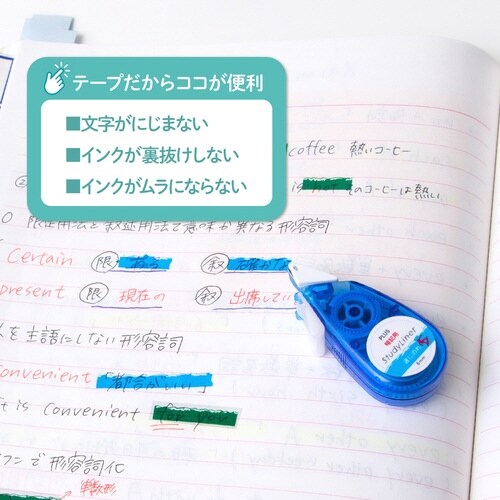 テープだからココが便利
■文字がにじまない
■インクが裏抜けしない
■インクがムラにならない
coffee 熱いコーヒー
is hot そのコーヒーは熱い
限定用法と叙述用法で意味が異なる形容詞
Certain 限 ある 叙 確かな
present 限 現在の 叙 出席してい
を主語にしない形容詞
convenent 「都合がいい」
t is convenient for you
で形容詞化
PLUS
暗記用
StudyLiner